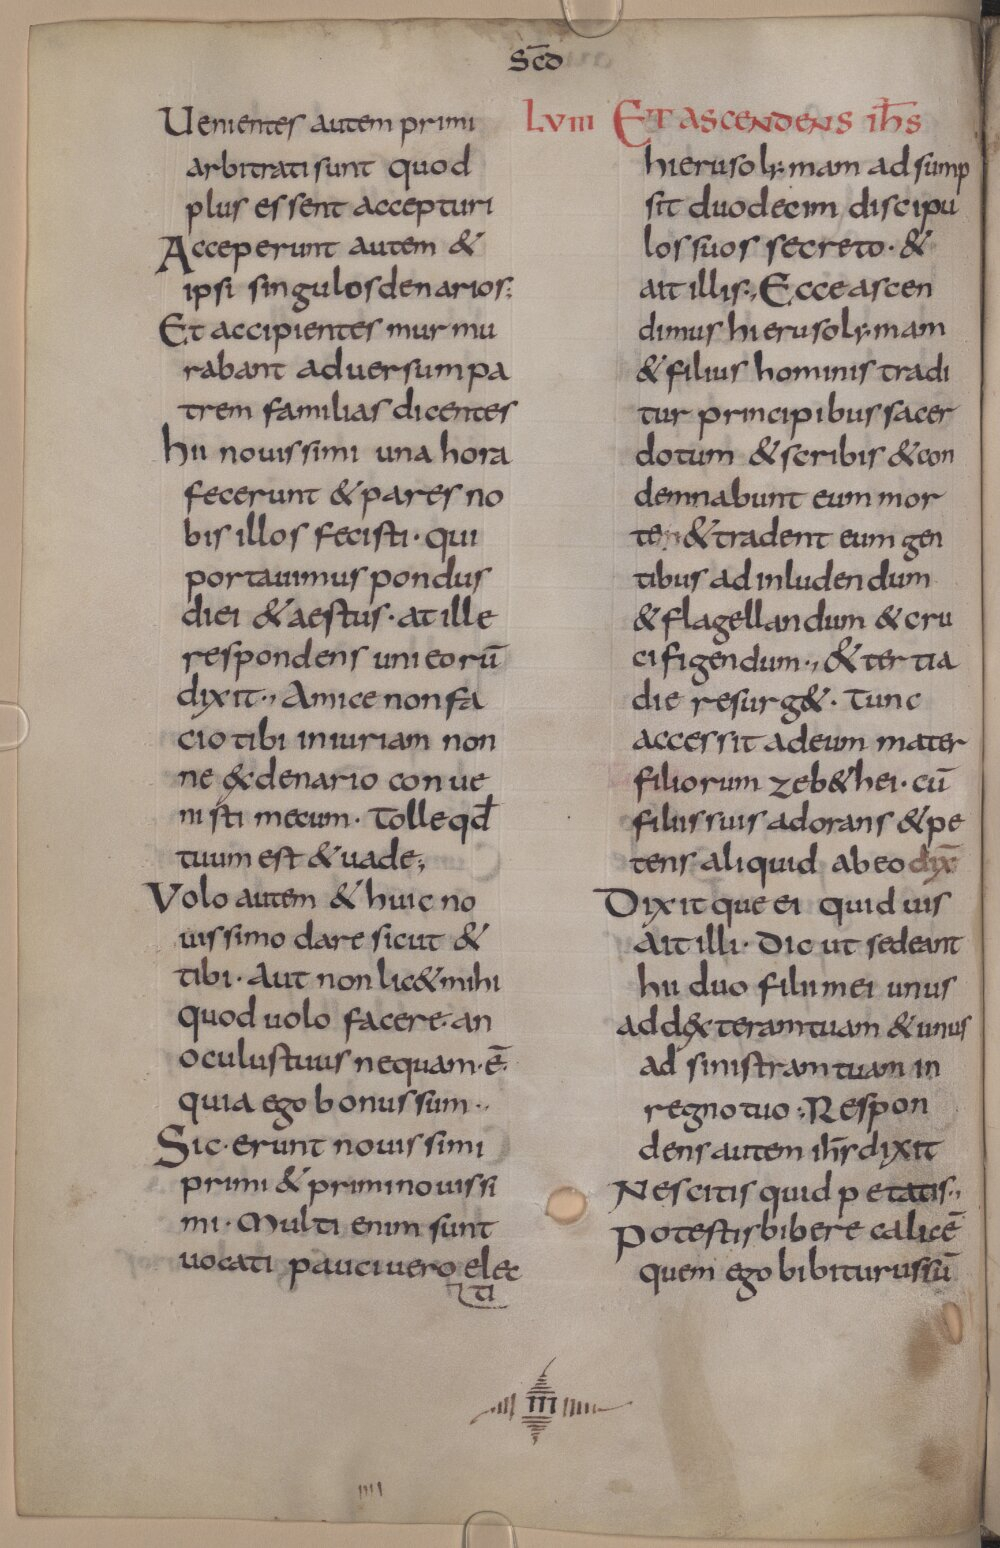 Scd̄
Uenientes autem primi
arbitrati sunt quod
plus essent accepturi
Acceperunt autem &
ipsi singulos denarios;
Et accipientes murmu
rabant aduersum pa
trem familias dicentes
hii nouissimi una hora
fecerunt & pares no
bis illos fecisti · qui
portauimus pondus
diei & aestus · at ille
respondens uni eorū
dixit ·, Amice non fa
cio tibi iniuriam non
ne ex denario conue
nisti mecum · Tolle qd̄
tuum est & uade;
Volo autem & huic no
uissimo dare sicut &
tibi · Aut non lic& mihi
quod uolo facere · an
oculus tuus nequam · ē ·
quia ego bonus sum ·,
Sic · erunt nouissimi
primi & primi nouissi
mi · Multi enim sunt
uocati pauci uero elec
ti
LVIII Et ascendens ih̄s
hierusolymam adsump
sit duodecim discipu
los suos secreto · &
ait illis ·, Ecce ascen
dimus hierusolymam
& filius hominis tradi
tur principibus sacer
dotum & scribis & con
demnabunt eum mor
te & tradent eum gen
tibus ad inludendum
& flagellandum & cru
cifigendum ·, & tertia
die resurg& · Tunc
accessit ad eum mater
filiorum zeb&hei · cū
filiis suis adorans & pe
tens aliquid ab eo dix̄
Dixitque ei quid uis
Ait illi · Dic ut sedeant
hii duo filii mei unus
ad dexteram tuam & unus
ad sinistram tuam in
regno tuo ; Respon
dens autem ih̄s dixit
Nescitis quid petatis ·,
Potestis bibere calicē
quem ego bibiturus sū
III
IIII